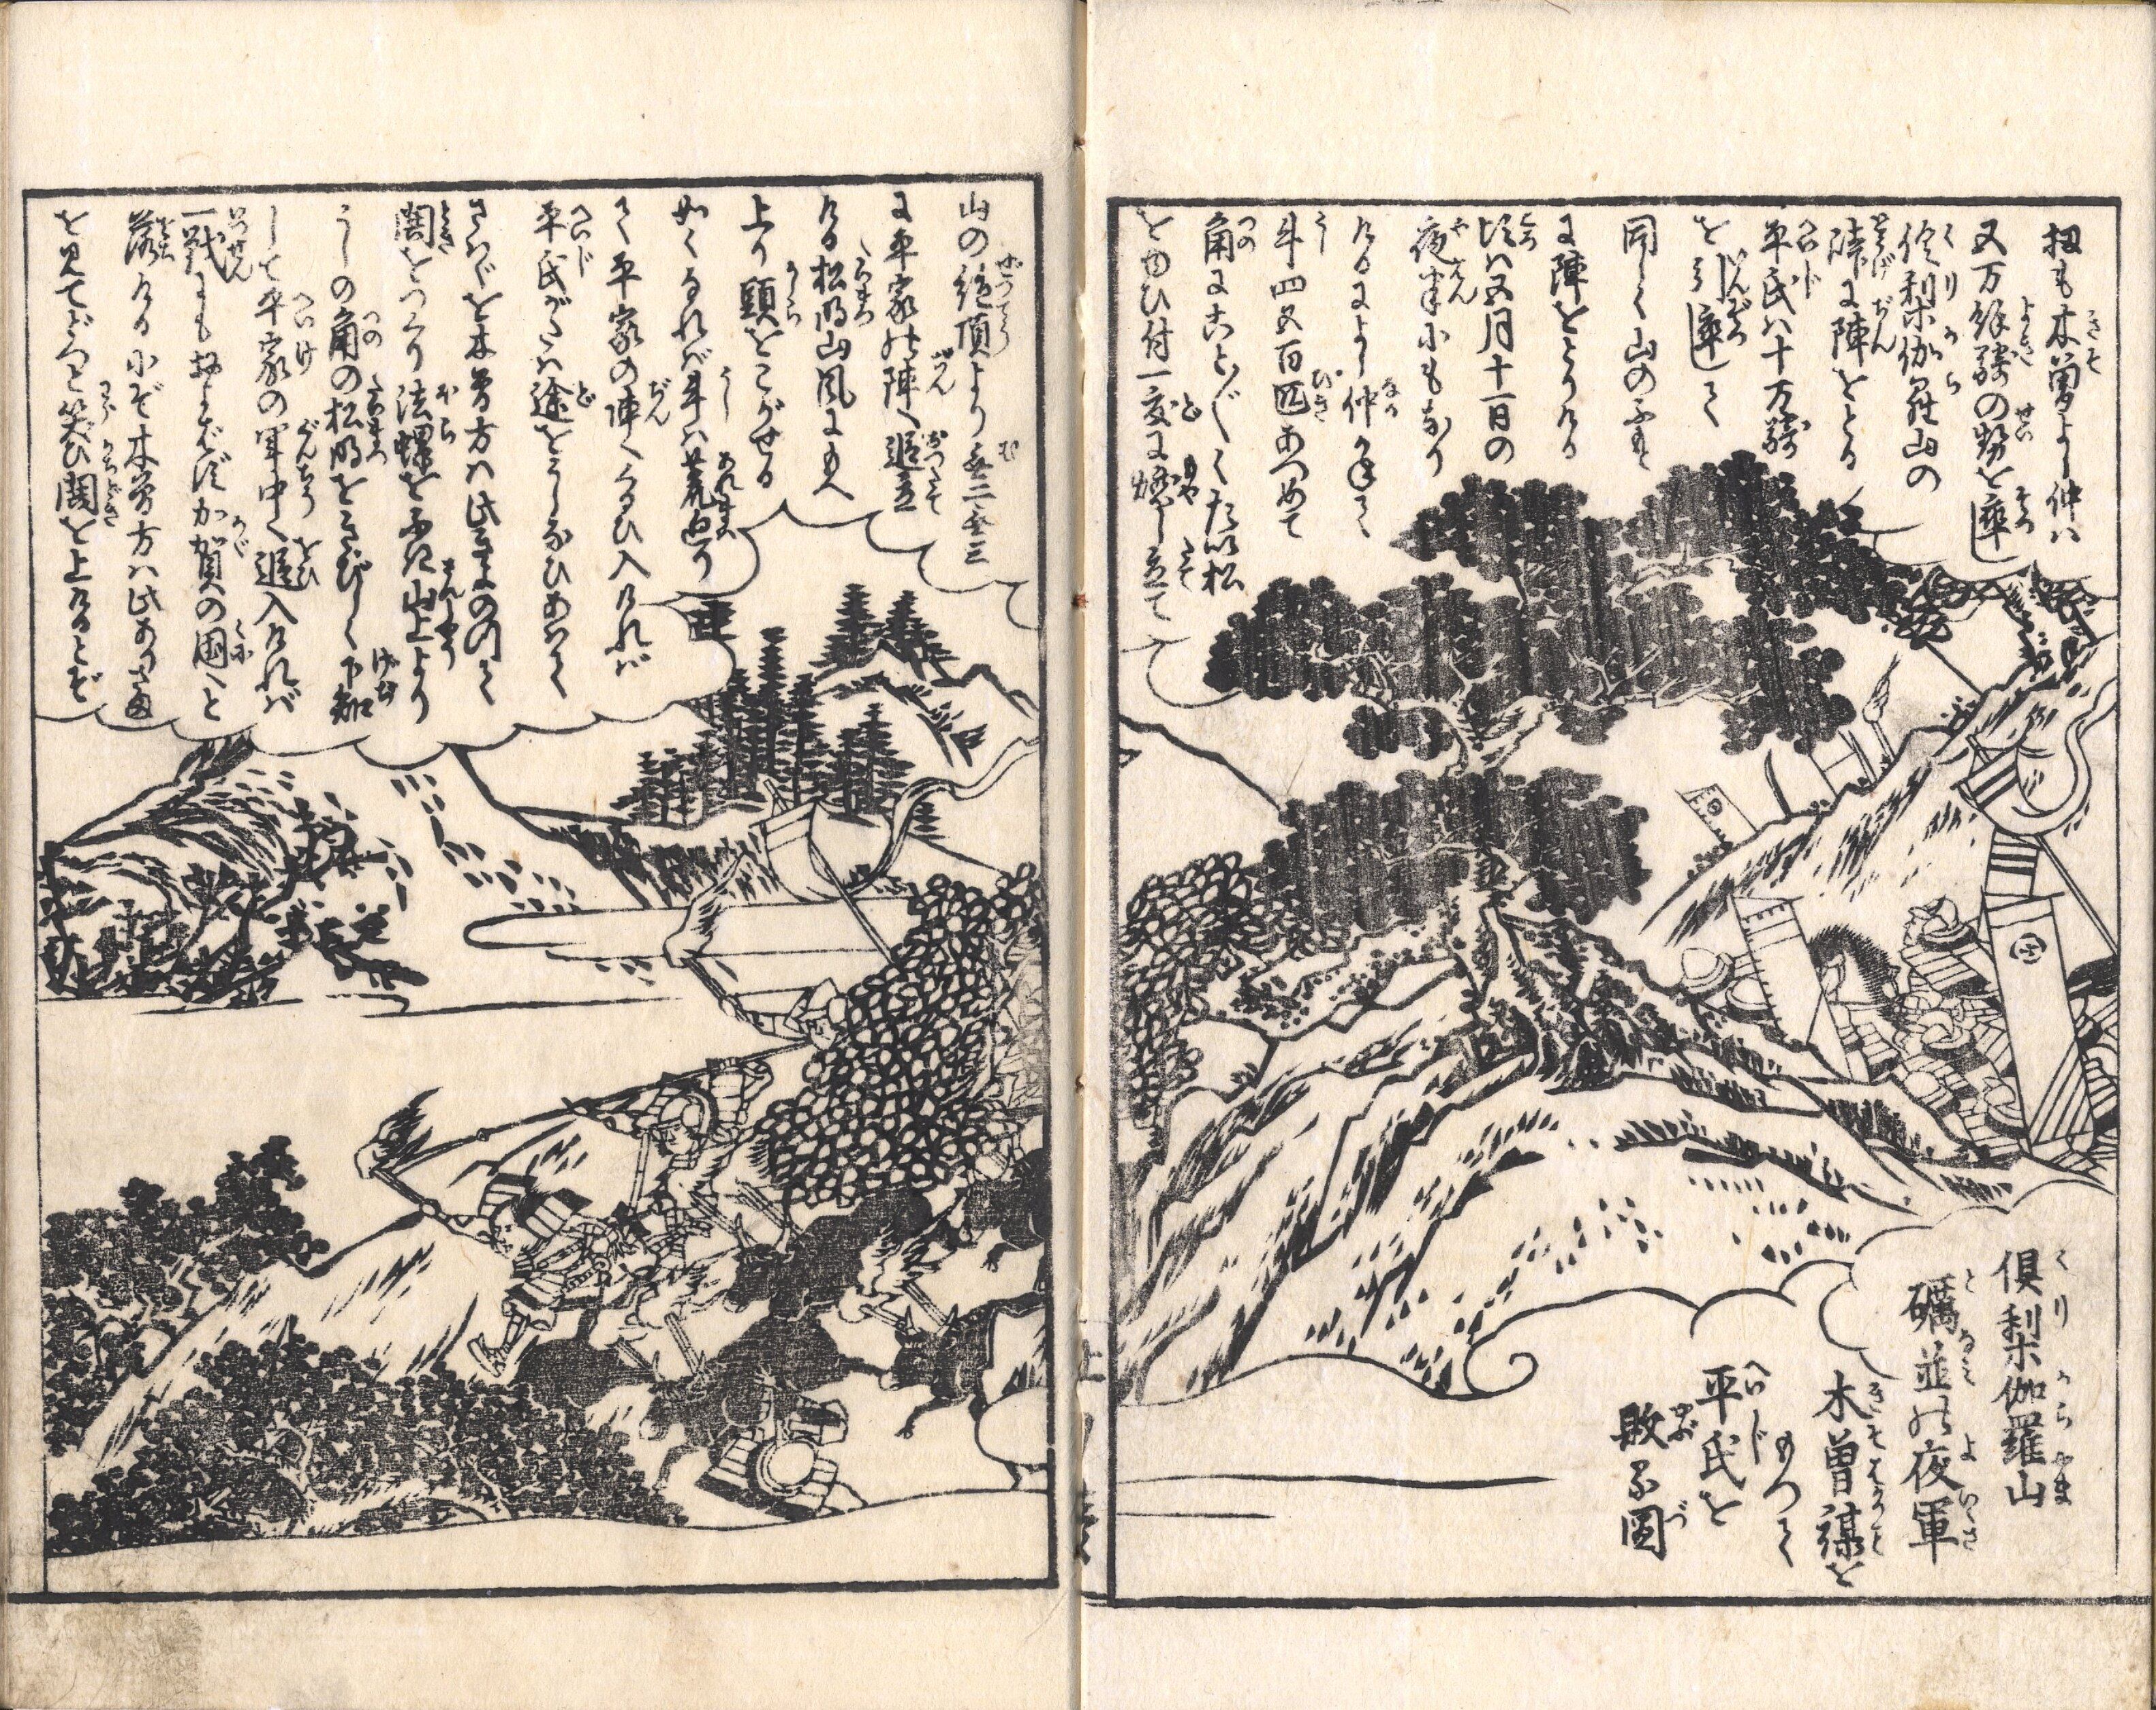 扨も木曽よし仲ハ
五万余騎の勢を率し
倶利伽羅山の
陣に陣をとる
平氏ハ十万騎
を引率して
同しく山のふもと
に陣をとりける
頃ハ五月十一日の
夜半にも及り
けるによし仲かねて
牛四五百匹あつめて
角にこと〴〵くたい松
をゆひ付一度に燃し立て
山の絶頂より無二無三
に平家の陣へ追立
ける松明山風にもへ
上り頭をこがせる
如くなれバ牛ハ荒廻り
て平家の陣へくるひ入けれバ
平氏がたハ途をうしなひあハて
さわぐを木曽方ハ此
閧をつくり法螺をふき山上より
うしの角の松明をきびしく下知
して平家の軍中へ追入けれバ
一戦にも扨およばず加賀の国へと
落けるにぞ木曽方ハ此ありさま
を見てどつと笑ひ閧を上けるとぞ
倶利伽羅山
礪並の夜軍
木曽謀を
めつて
平氏を
敗る図